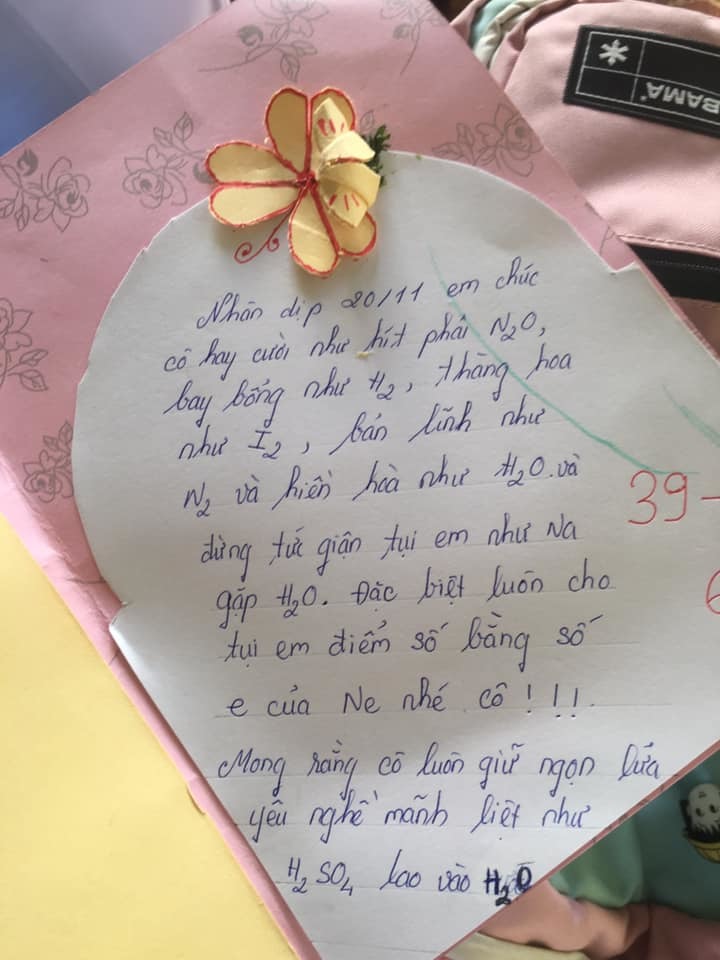 Nhân dịp 20/11 em chúc
cô hay cười như hít phải N₂O,
bay bổng như H₂, thăng hoa
như I₂, bản lĩnh như
N₂ và hiền hoà như H₂O. và
đừng tức giận tụi em như Na
gặp H₂O. Đặc biệt luôn cho
tụi em điểm số bằng số
e của Ne nhé cô!!!
Mong rằng cô luôn giữ ngọn lửa
yêu nghề mãnh liệt như
H₂SO₄ lao vào H₂O
39-
BAMA